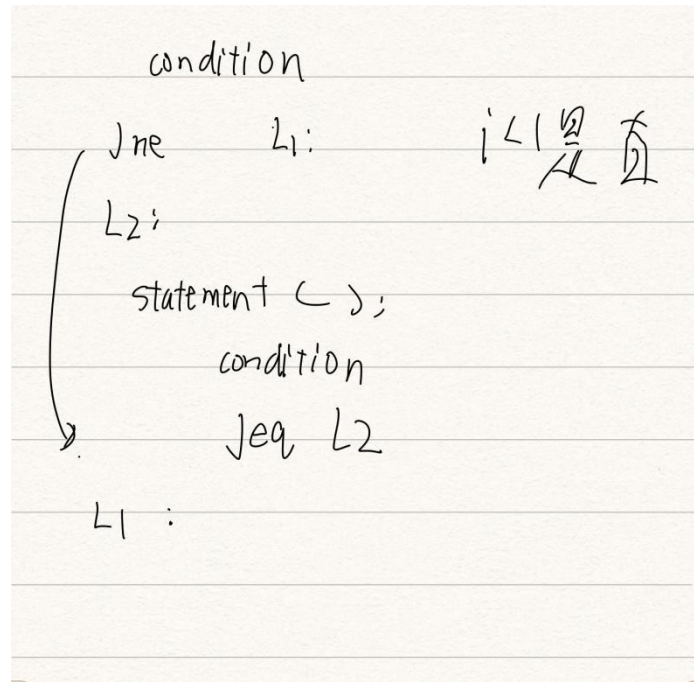 condition
Jne L1: i<1是否
L2:
statement ( );
condition
Jeq L2
L1 :